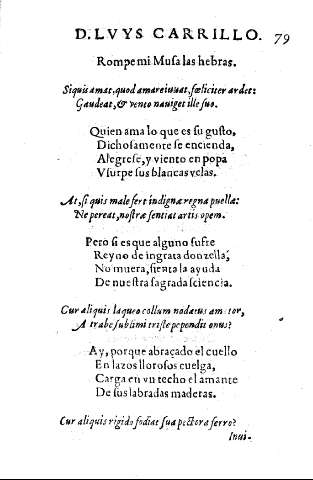 D. LVYS CARRILLO. 79
Rompe mi Musa las hebras.
Siquis amat, quod amare iuuat, fœliciter ardet:
Gaudeat, & vento nauiget ille suo.
Quien ama lo que es su gusto,
Dichosamente se encienda,
Alegrese, y viento en popa
Vsurpe sus blancas velas.
At, si quis male fert indignæ regna puellæ:
Ne pereat, nostræ sentiat artis opem.
Pero si es que alguno sufre
Reyno de ingrata donzella,
No muera, sienta la ayuda
De nuestra sagrada sciencia.
Cur aliquis laqueo collum nodatus amator,
A trabe sublimi triste pependit onus?
Ay, porque abraçado el cuello
En lazos llorosos cuelga,
Carga en vn techo el amante
De sus labradas maderas.
Cur aliquis rigido fodiat sua pectora ferro?
Inui-